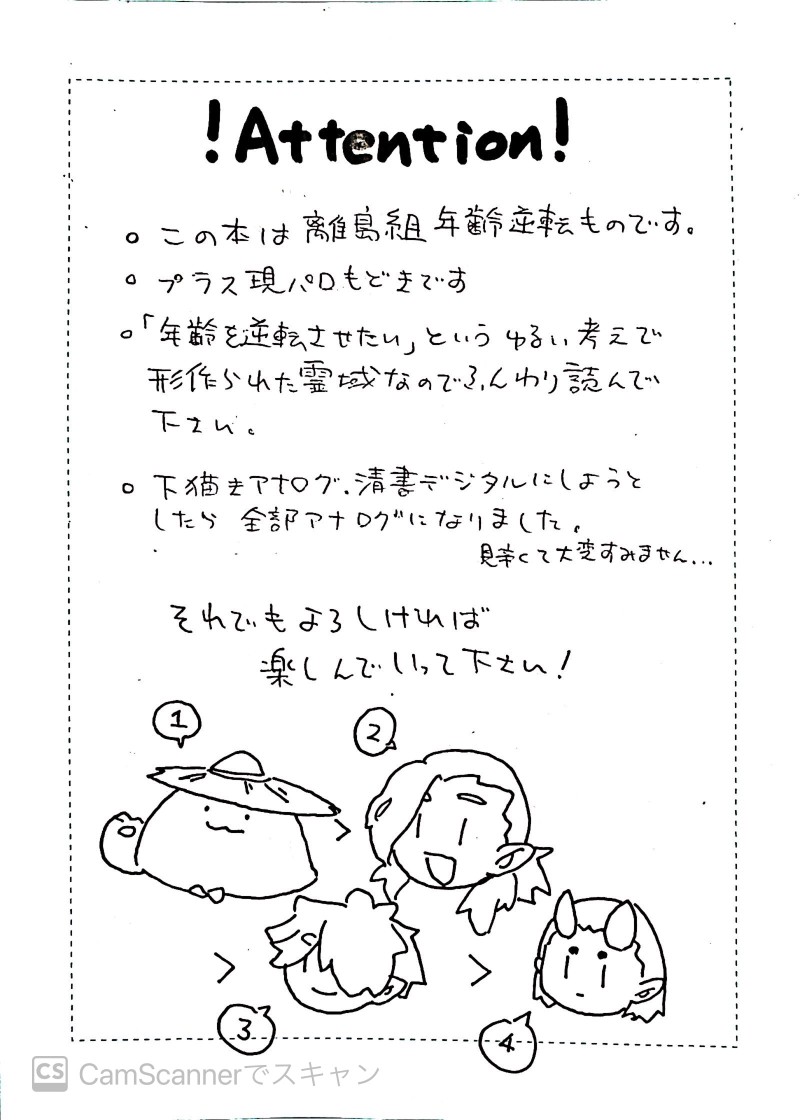 !Attention!
○ この本は 離島組 年齢逆転ものです。
○ プラス現パロもどきです
○「年齢を逆転させたい」という ゆるい考えで
形作られた霊域なのでふんわり読んで
下さい。
○ 下描きアナログ、清書デジタルにしようと
したら 全部アナログになりました。
見辛くて大変すみません...
それでもよろしければ
楽しんでいって下さい!
1
2
>
>
>
3
4
CS CamScannerでスキャン